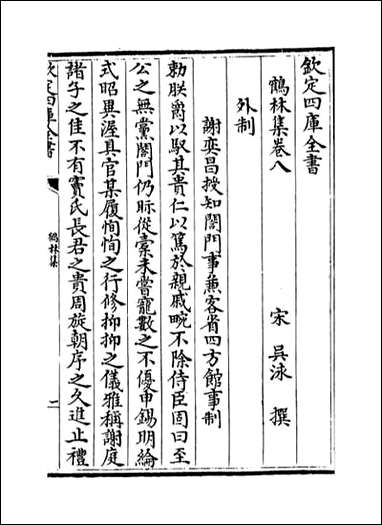 欽定四庫全書
鶴林集卷八
宋 吳泳 撰
外制
謝奕昌授知閤門事兼客省四方館事制
勅朕爵以馭其貴仁以篤於親戚畹不除侍臣固曰至
公之無黨閤門仍眎從橐未嘗寵數之不優申錫明綸
式昭異渥具官某履恂恂之行修抑抑之儀雅稱謝庭
諸子之佳不有竇氏長君之貴周旋朝序之久進止禮
欽定四庫全書
鶴林集
一